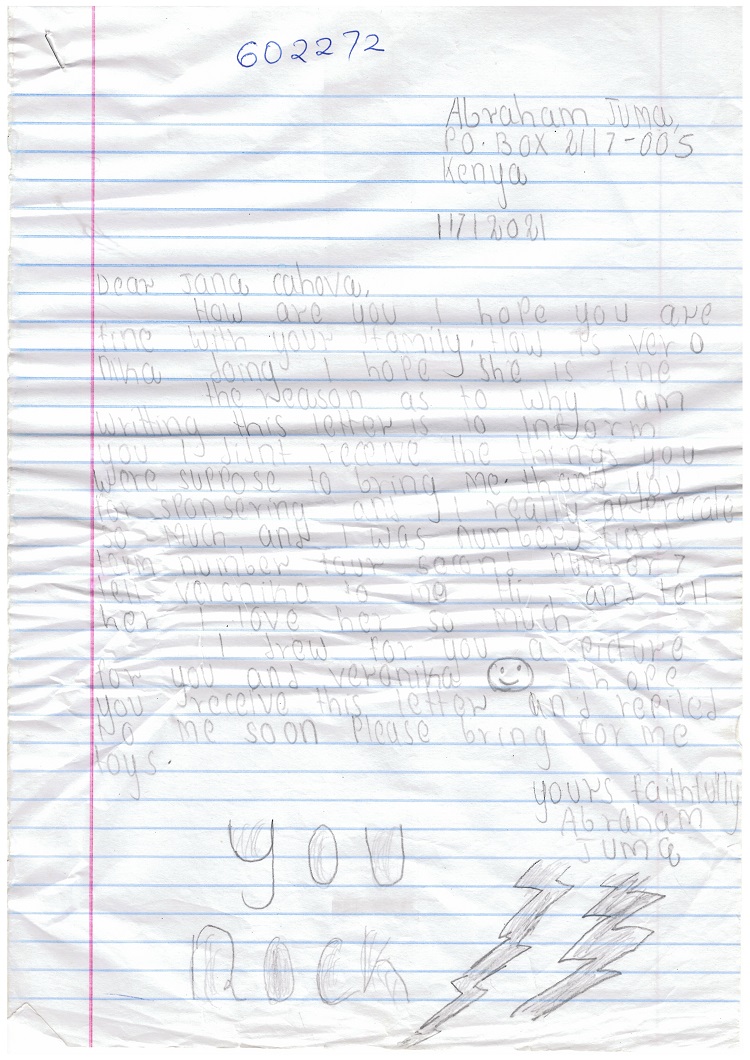 602272
Abraham Juma,
P.O. BOX 2117-005
Kenya
11712021
Dear Jana Cahova,
How are you I hope you are
fine with your family. How is vero
nika doing I hope she is fine
the reason as to why I am
writting this letter is to inform
you I didnt receive the things you
were suppose to bring me. thank you
for sponsering and I really
so much and I was number first
term number four number 7
tell veronika to me Hi and tell
her I love her so much
I drew for you a picture
for you and veronika I hope
you receive this letter and replied
to me soon Please bring for me
toys.
yours faithfully
Abraham
Juma
you
Rock